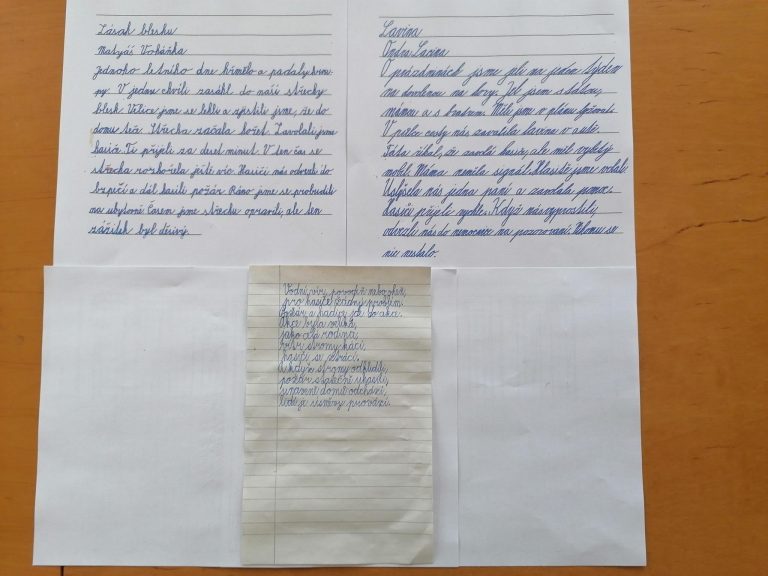 Zásah blesku
Matyáš
Jednoho letního dne hřmělo a padaly kroupy. V jednu chvíli zasáhl do naší střechy
blesk. Velice jsme se lekli a zjistili jsme, že do
domu teče. Střecha začala hořet. Zavolali jsme
hasiče. Ti přijeli za deset minut. V ten čas se
střecha rozhořela ještě víc. Hasiči nás odvezli do
bezpečí a dál hasili požár. Ráno jsme se probudili
na ubytovně. Časem jsme střechu opravili, ale ten
zážitek byl děsivý.
Lavina
Ondra Lacina
O prázdninách jsme jeli na jeden týden
na dovolenou na hory. Jel jsem s tátou,
mámou a s bratrem. Měli jsme v plánu lyžovat.
V půlce cesty nás zavalila lavina v autě.
Táta říkal, že zavolá hasiče, ale měl vybitý
mobil. Máma neměla signál. Hlasitě jsme volali.
Uslyšela nás jedna paní a zavolala pomoc.
Hasiči přijeli rychle. Když nás vyprostili,
odvezli nás do nemocnice na pozorování. Nikomu se
nic nestalo.
Vodní vír, povodeň nebo oheň,
pro hasiče žádný problém.
Požár a hadice jde do akce.
Akce byla veliká,
jako celá rodina,
vítr stromy kácí,
hasiči se neztrácí.
A když stromy odklidili,
požár statečně uhasili,
unaveni domů odchází,